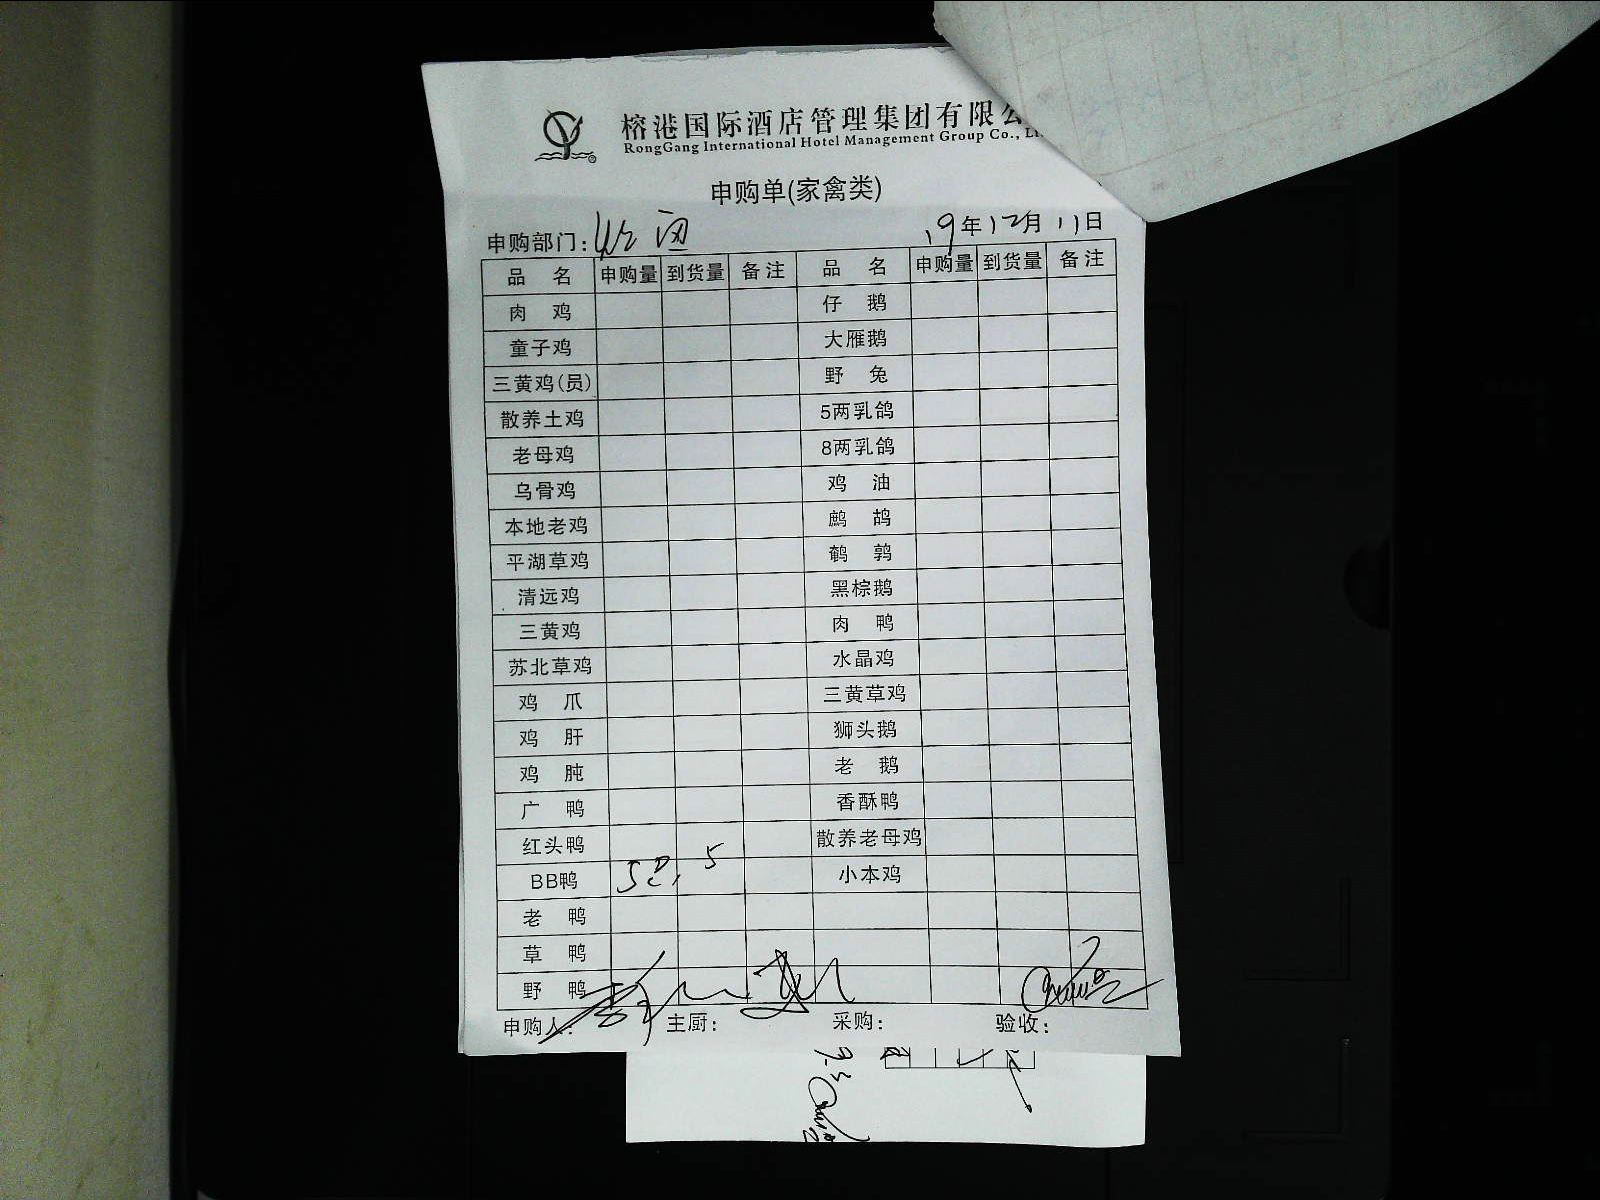 榕港国际酒店管理集团有限公
RongGang International Hotel Management Group Co., L
申购单(家禽类)
申购部门: 19年12月11日
品名 申购量 到货量 备注 品名 申购量 到货量 备注
肉鸡 仔鹅
童子鸡 大雁鹅
三黄鸡(员) 野兔
散养土鸡 5两乳鸽
老母鸡 8两乳鸽
乌骨鸡 鸡油
本地老鸡 鹧鸪
平湖草鸡 鹌鹑
清远鸡 黑棕鹅
三黄鸡 肉鸭
苏北草鸡 水晶鸡
鸡爪 三黄草鸡
鸡肝 狮头鹅
鸡肫 老鹅
广鸭 香酥鸭
红头鸭 散养老母鸡
BB鸭 5 小本鸡
老鸭
草鸭
野鸭
申购人: 主厨: 采购: 验收: